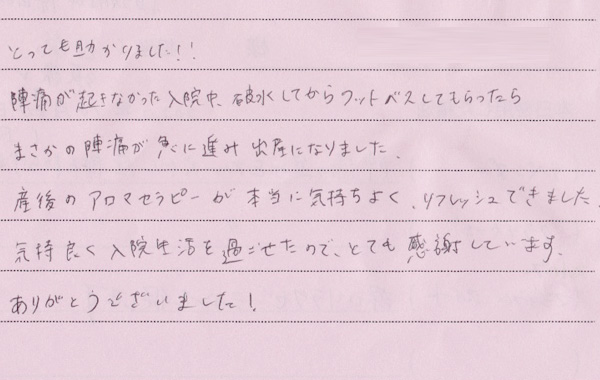 とっても助かりました!!
陣痛が起きなかった入院中、破水してからフットバスしてもらったら
まさかの陣痛が急に進み出産になりました。
産後のアロマセラピーが本当に気持ちよく、リフレッシュできました。
気持良く入院生活を過ごせたので、とても感謝しています。
ありがとうございました!